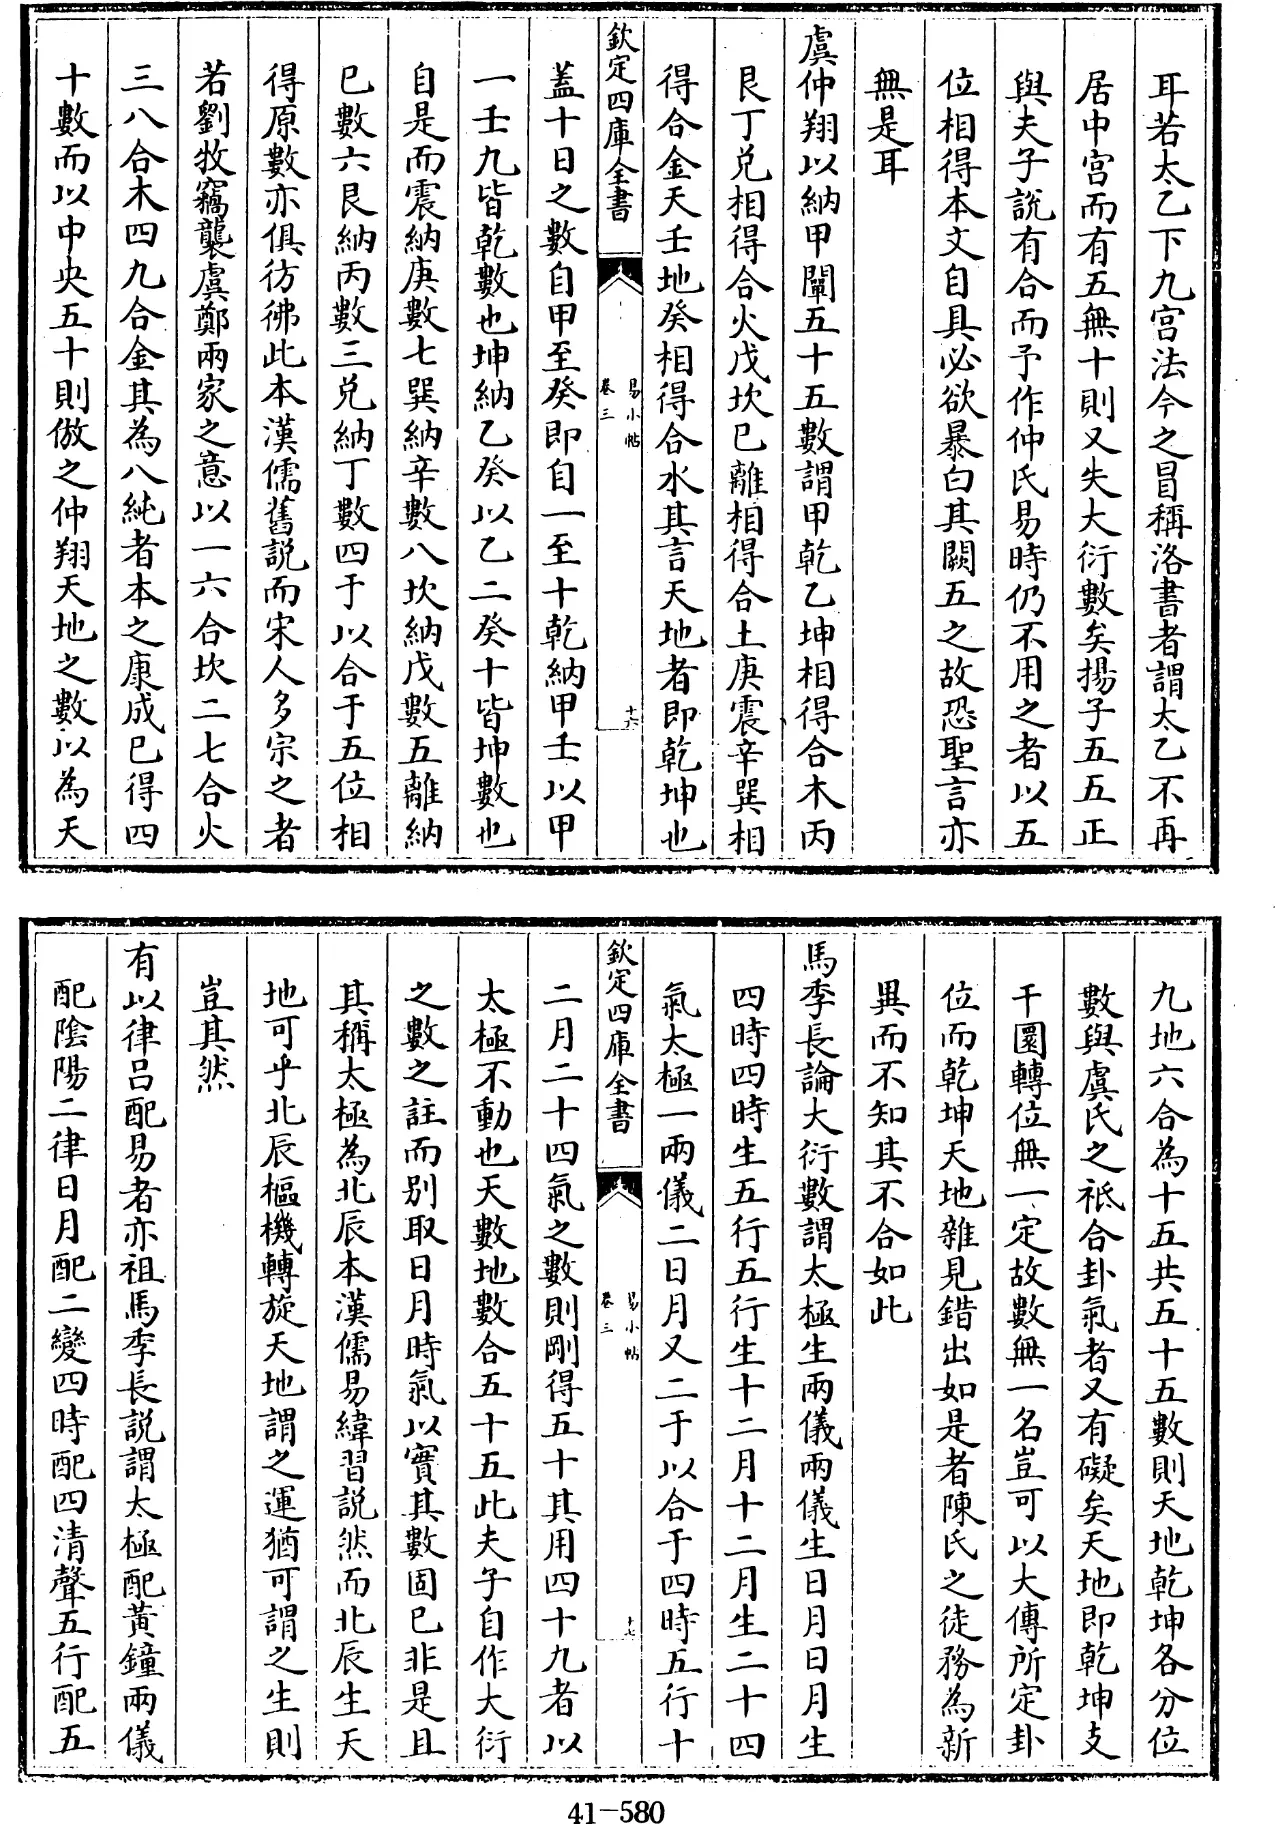 耳若太乙下九宮法今之冒稱洛書者謂太乙不再
居中宮而有五無十則又失大衍數矣揚子五五正
與夫子說有合而予作仲氏易時仍不用之者以五
位相得本文自具必欲暴白其闕五之故恐聖言亦
無是耳
虞仲翔以納甲闡五十五數謂甲乾乙坤相得合木丙
艮丁兌相得合火戊坎己離相得合土庚震辛巽相
得合金天壬地癸相得合水其言天地者即乾坤也
欽定四庫全書
易小帖
卷三
十六
蓋十日之數自甲至癸即自一至十乾納甲壬以甲
一壬九皆乾數也坤納乙癸以乙二癸十皆坤數也
自是而震納庚數七巽納辛數八坎納戊數五離納
巳數六艮納丙數三兌納丁數四于以合于五位相
得原數亦俱彷彿此本漢儒舊說而宋人多宗之者
若劉牧竊襲虞鄭兩家之意以一六合坎二七合火
三八合木四九合金其為八純者本之康成已得四
十數而以中央五十則倣之仲翔天地之數以為天
九地六合為十五共五十五數則天地乾坤各分位
數與虞氏之祗合卦氣者又有礙矣天地即乾坤支
干圜轉位無一定故數無一名豈可以大傳所定卦
位而乾坤天地雜見錯出如是者陳氏之徒務為新
異而不知其不合如此
馬季長論大衍數謂太極生兩儀兩儀生日月日月生
四時四時生五行五行生十二月十二月生二十四
氣太極一兩儀二日月又二于以合于四時五行十
欽定四庫全書
易小帖
卷三
十七
二月二十四氣之數則剛得五十其用四十九者以
太極不動也天數地數合五十五此夫子自作大衍
之數之註而別取日月時氣以實其數固已非是且
其稱太極為北辰本漢儒易緯習說然而北辰生天
地可乎北辰樞機轉旋天地謂之運猶可謂之生則
豈其然
有以律呂配易者亦祖馬季長說謂太極配黃鐘兩儀
配陰陽二律日月配二變四時配四清聲五行配五
41-580